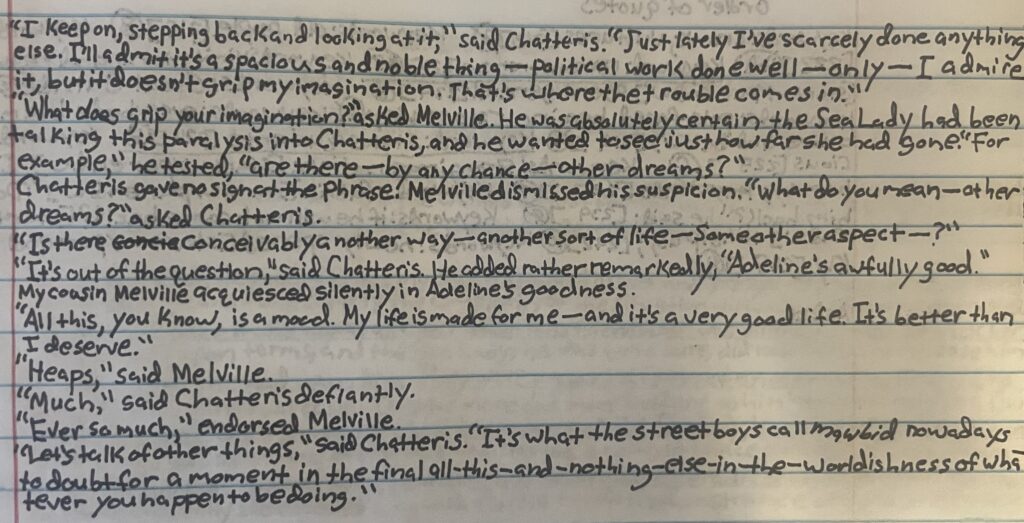 "I keep on, stepping back and looking at it," said Chatteris. "Just lately I've scarcely done anything
else. I'll admit it's a spacious and noble thing—political work done well—only—I admire
it, but it doesn't grip my imagination. That's where the trouble comes in."
"What does grip your imagination?" asked Melville. He was absolutely certain the Sea Lady had been
talking this paralysis into Chatteris, and he wanted to see just how far she had gone. "For
example," he tested, "are there—by any chance—other dreams?"
Chatteris gave no sign at the phrase. Melville dismissed his suspicion. "What do you mean—other
dreams?" asked Chatteris.
"Is there conceivably another way—another sort of life—some other aspect—?"
"It's out of the question," said Chatteris. He added rather remarkedly, "Adeline's awfully good."
My cousin Melville acquiesced silently in Adeline's goodness.
"All this, you know, is a mood. My life is made for me—and it's a very good life. It's better than
I deserve."
"Heaps," said Melville.
"Much," said Chatteris defiantly.
"Ever so much," endorsed Melville.
"Let's talk of other things," said Chatteris. "It's what the street boys call mawbid nowadays
to doubt for a moment in the final all-this-and-nothing-else-in-the-worldishness of wha
tever you happen to be doing."